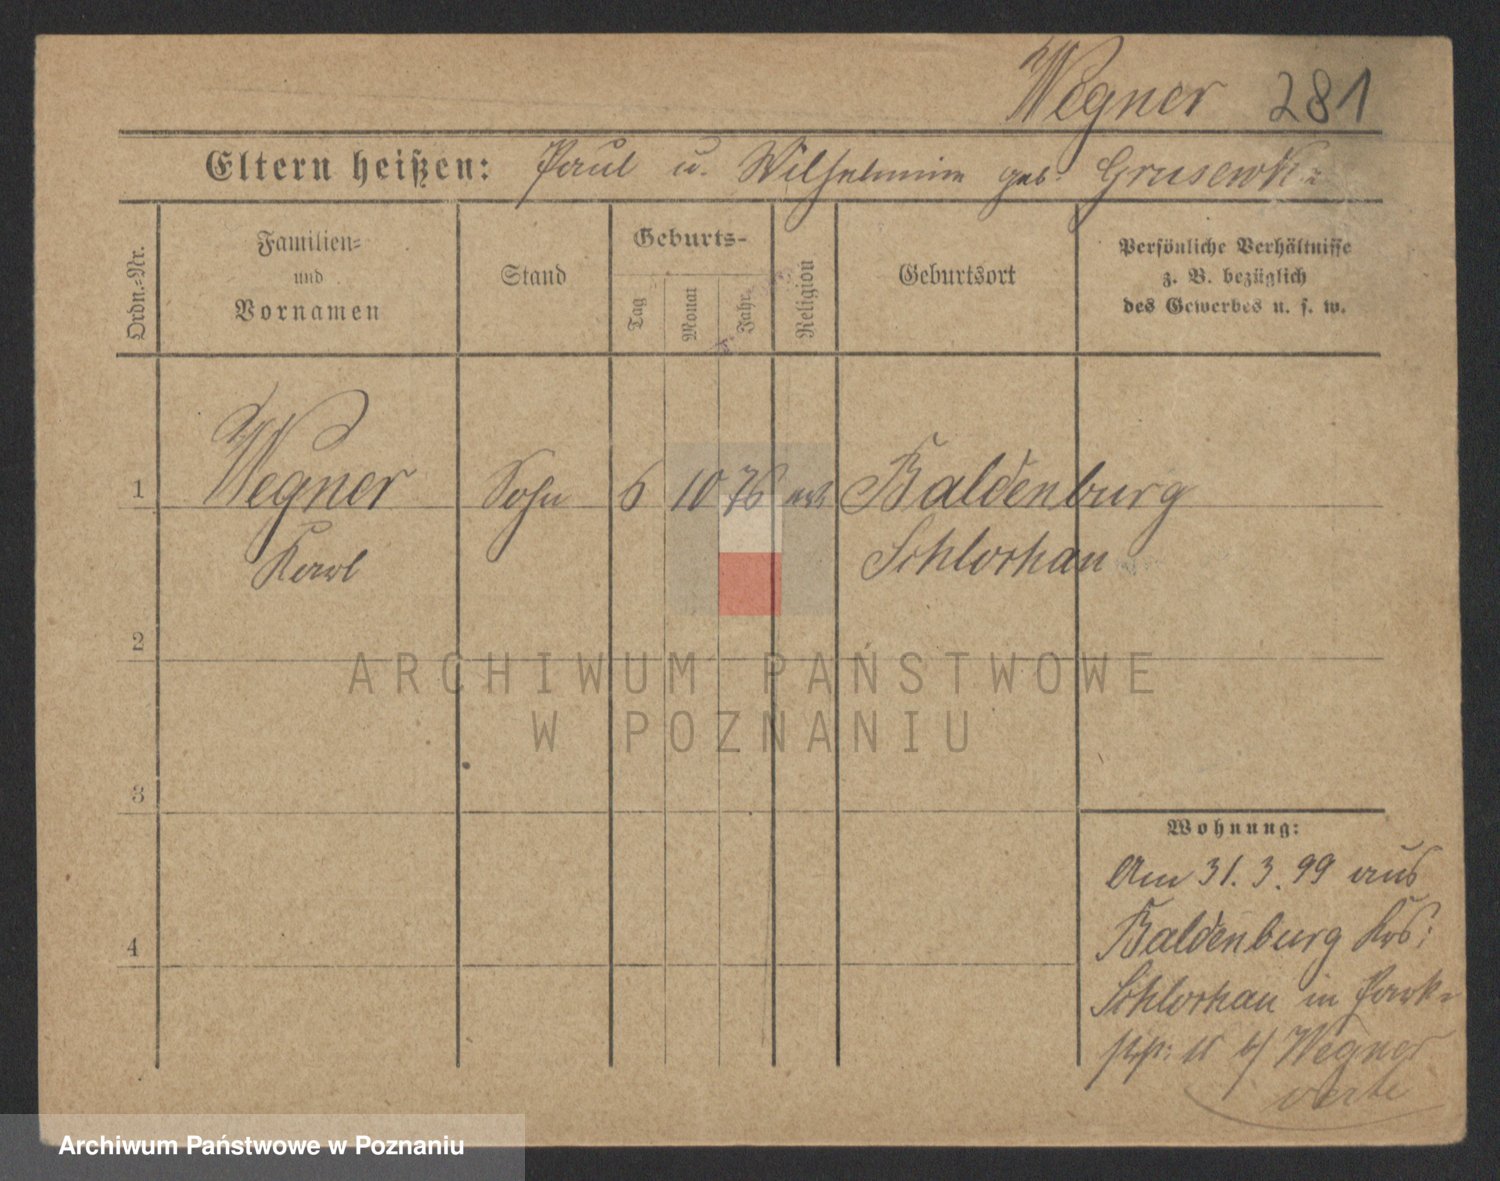 Wegner 281
Eltern heißen: Paul u. Wilhelmine geb.
Ordn.-Nr.
Familien-
und
Vornamen
Stand
Geburts-
Tag
Monat
Jahr
Religion
Geburtsort
Persönliche Verhältnisse
z. B. bezüglich
des Gewerbes u. s. w.
1 Wegner Sohn 6 10 76 Baldenburg
Karl Schlochau
2
ARCHIWUM PAŃSTWOWE
W POZNANIU
3
Wohnung:
Am 31. 3. 99 aus
4 Baldenburg Krs:
Schlochau in
b/ Wegner
verte
Archiwum Państwowe w Poznaniu